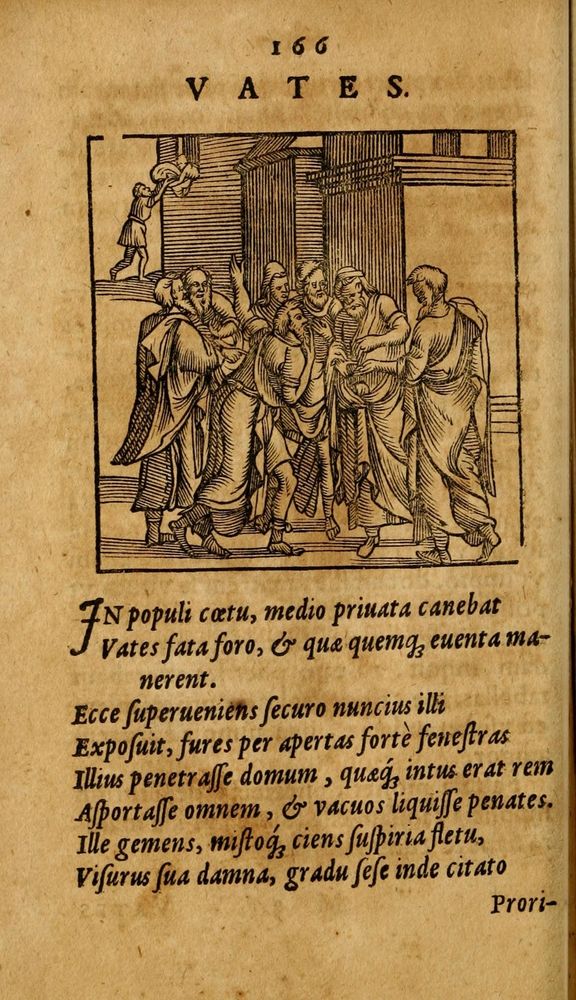 166
VATES.
IN populi cœtu, medio priuata canebat
Vates fata foro, & quæ quemqꝫ euenta ma-
nerent.
Ecce ſuperueniens ſecuro nuncius illi
Expoſuit, fures per apertas fortè feneſtras
Illius penetraſſe domum, quæq́ꝫ intus erat rem
Aſportaſſe omnem, & vacuos liquiſſe penates.
Ille gemens, miſtoq́ꝫ ciens ſuſpiria fletu,
Viſurus ſua damna, gradu ſeſe inde citato
Prori-